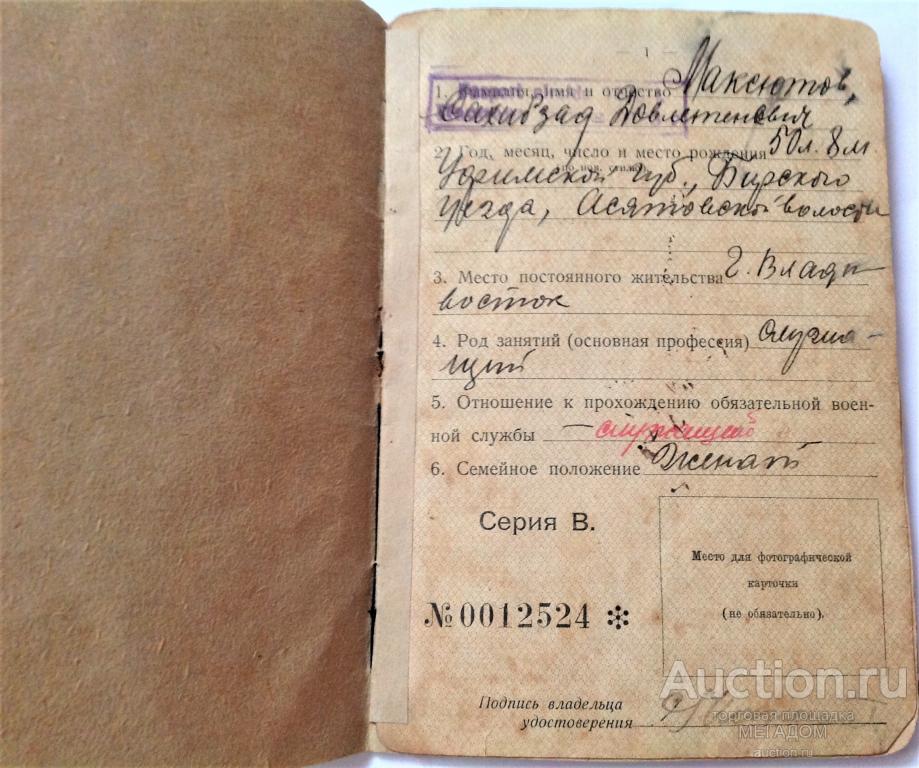 — 1 —
1. Фамилия, имя и отчество Максютов,
Сахибзад Довлетенович
2. Год, месяц, число и место рождения 50 л. 8 м
(по нов. стилю).
Уфимской губ., Бирского
уезда, Асятовской волости
3. Место постоянного жительства г. Влади
восток
4. Род занятий (основная профессия) служа-
щий
5. Отношение к прохождению обязательной воен-
ной службы — служащий
6. Семейное положение Женат
Серия В.
№ 0012524 ✻
Место для фотографической
карточки
(не обязательно).
Подпись владельца
удостоверения
Auction.ru
торговая площадка
МЕГАДОМ
auction.ru